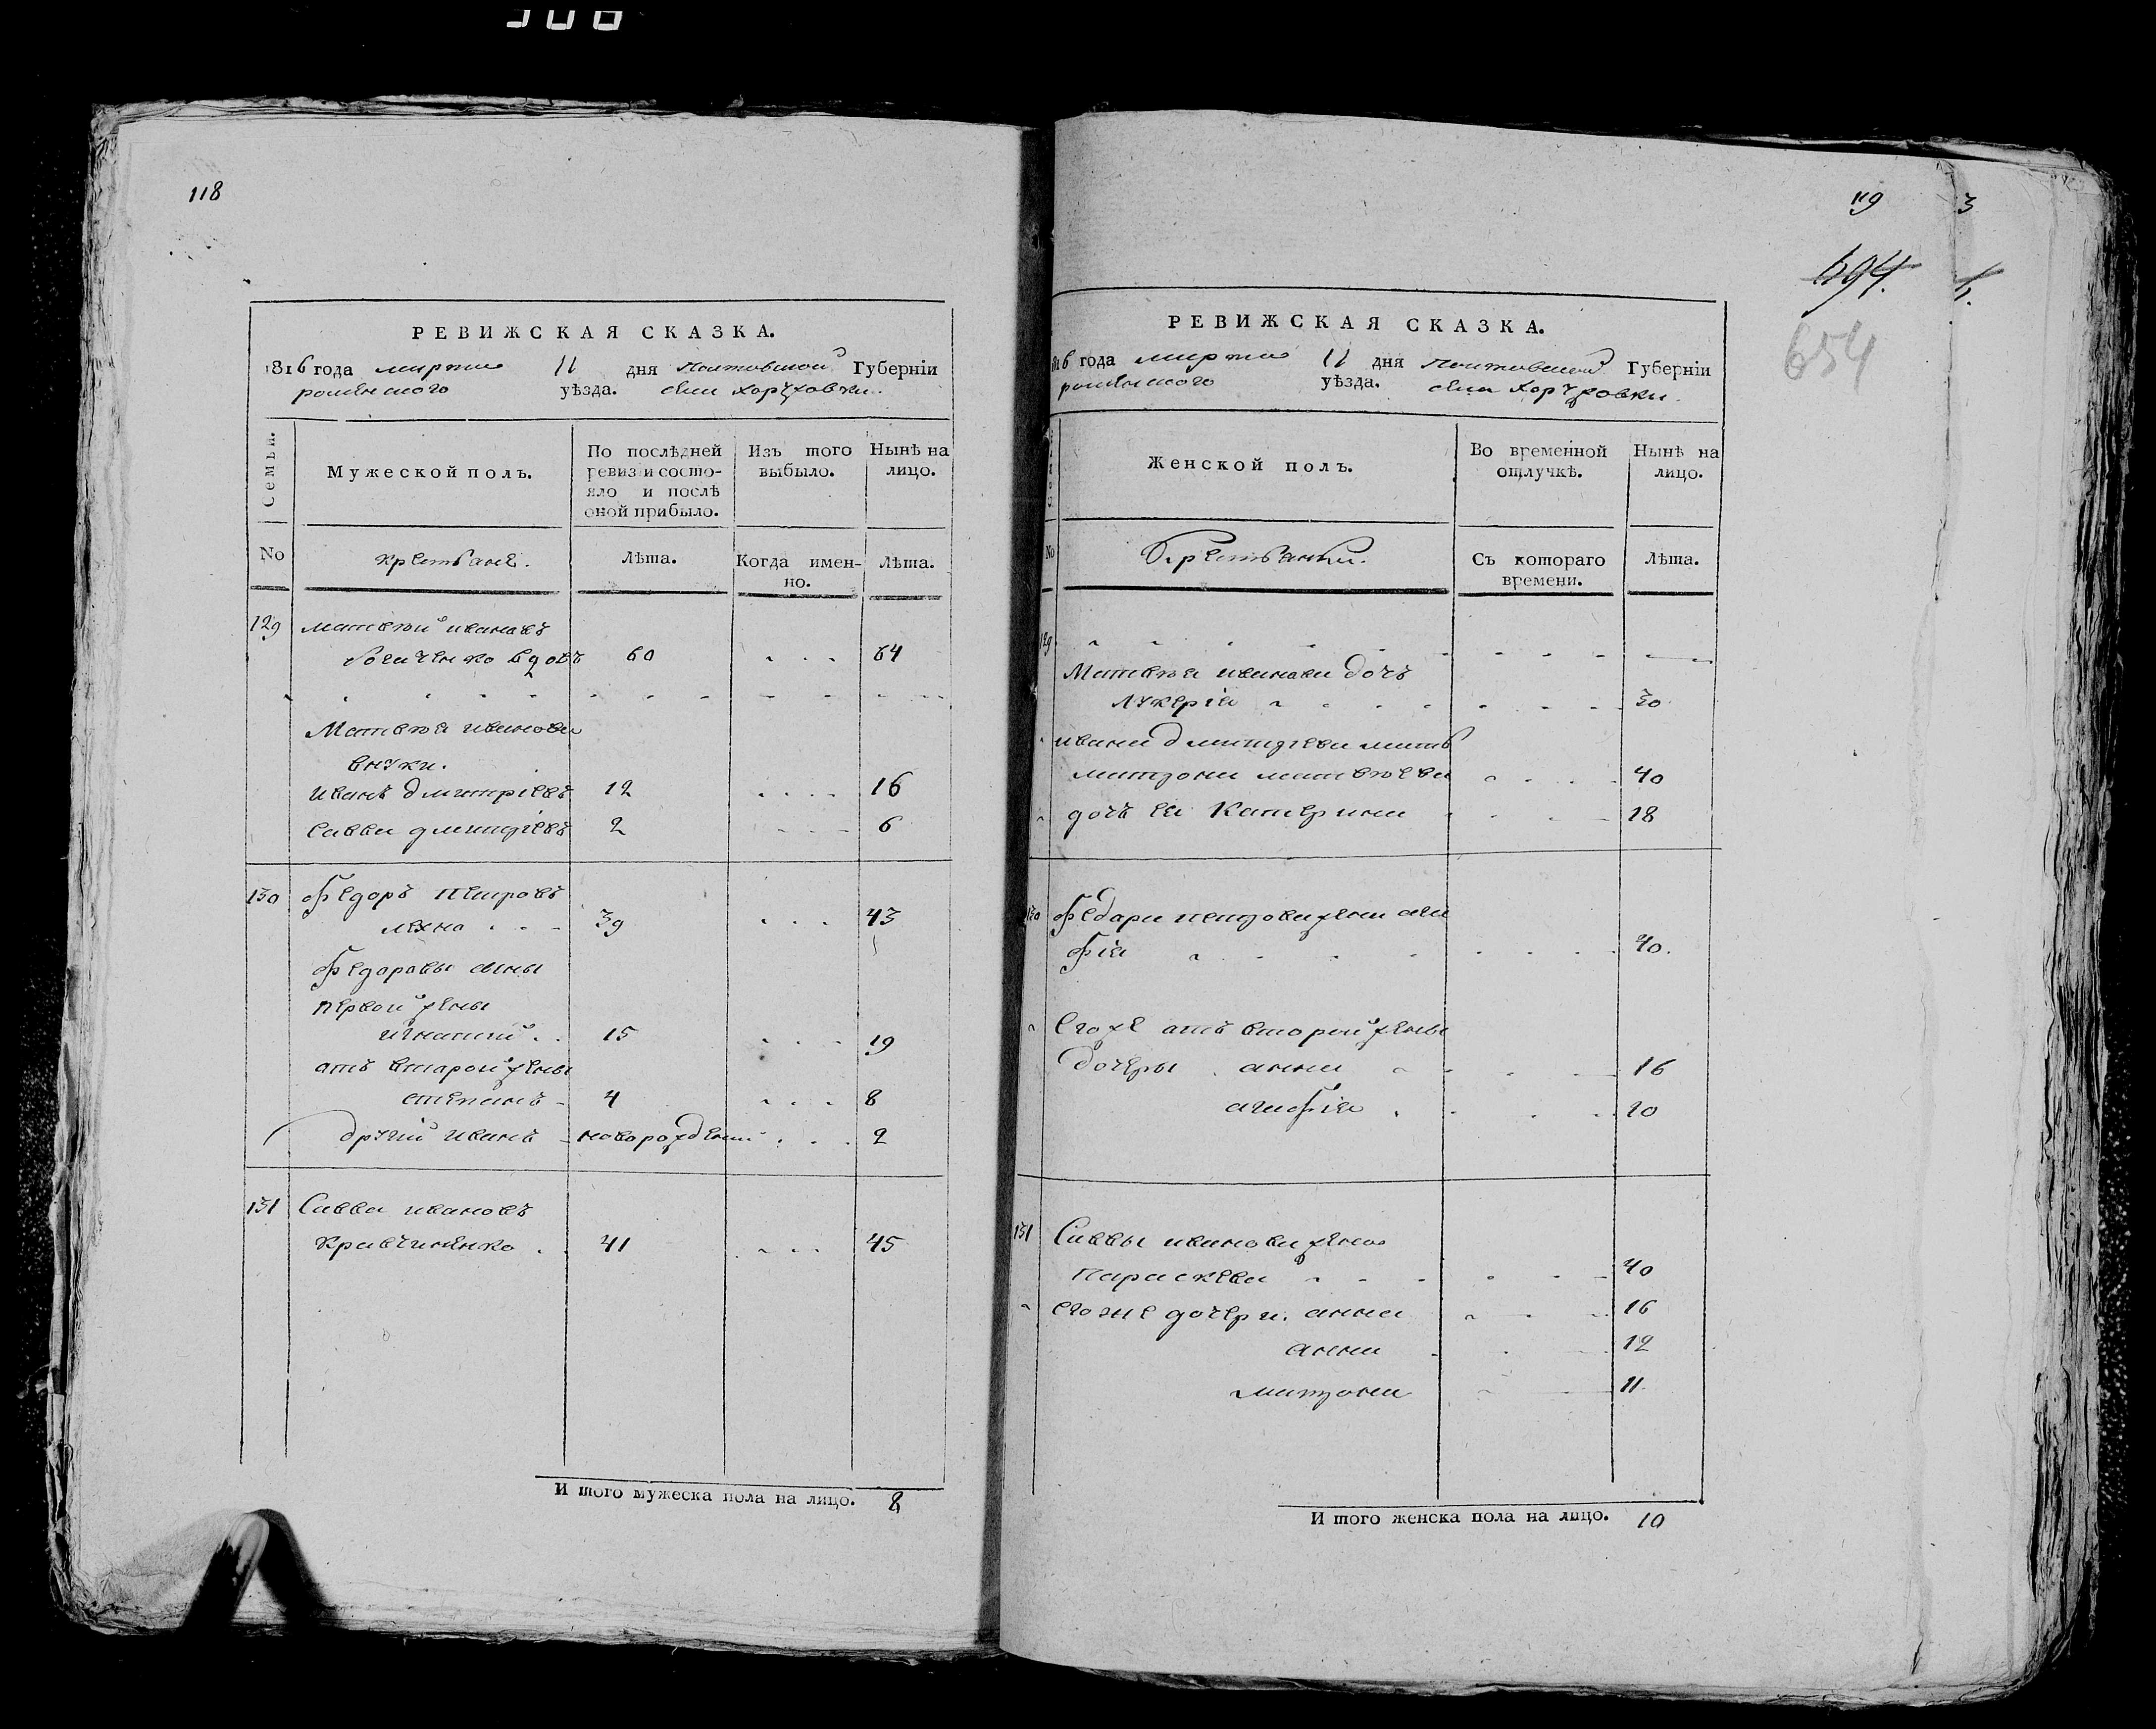 118
РЕВИЖСКАЯ СКАЗКА.
1816 года марта 11 дня Полтавской Губерніи
роменского уѣзда. села хоружовки.
Семьи.
Мужеской полъ.
По послѣдней ревизіи состояло и послѣ оной прибыло.
Изъ того выбыло.
Нынѣ на лицо.
No
крестьяне.
Лѣта.
Когда именно.
Лѣта.
129 матвѣй ивановъ
вдовъ 60 64
Матвѣя иванова
внуки.
иванъ дмитріевъ 12 16
савва дмитріевъ 2 6
130 Федоръ петровъ
лехно 39 43
Федоровы сыны
первой жены
игнатий 15 19
отъ второй жены
степанъ 4 8
другий иванъ новорожденний 2
131 Савва ивановъ
Кравчиненко 41 45
И того мужеска пола на лицо. 8
119 3
694.
654
РЕВИЖСКАЯ СКАЗКА.
1816 года марта 11 дня полтавской Губерніи
роменского уѣзда. села хоружовки.
Женской полъ.
Во временной отлучкѣ.
Нынѣ на лицо.
No
Крестьянки.
Съ котораго времени.
Лѣта.
129
Матвѣя иванова дочъ
лукеріа 30
ивана дмитріева мать
матрона матвѣева 40
дочъ ея Катерина 18
130 Федора петрова жена ага
фія 40.
Егоже отъ второй жены
дочеры анна 16
агафіа 10
131 Саввы иванова жена
параскева 40
егоже дочери. анна 16
анна 12
матрона 11
И того женска пола на лицо. 10